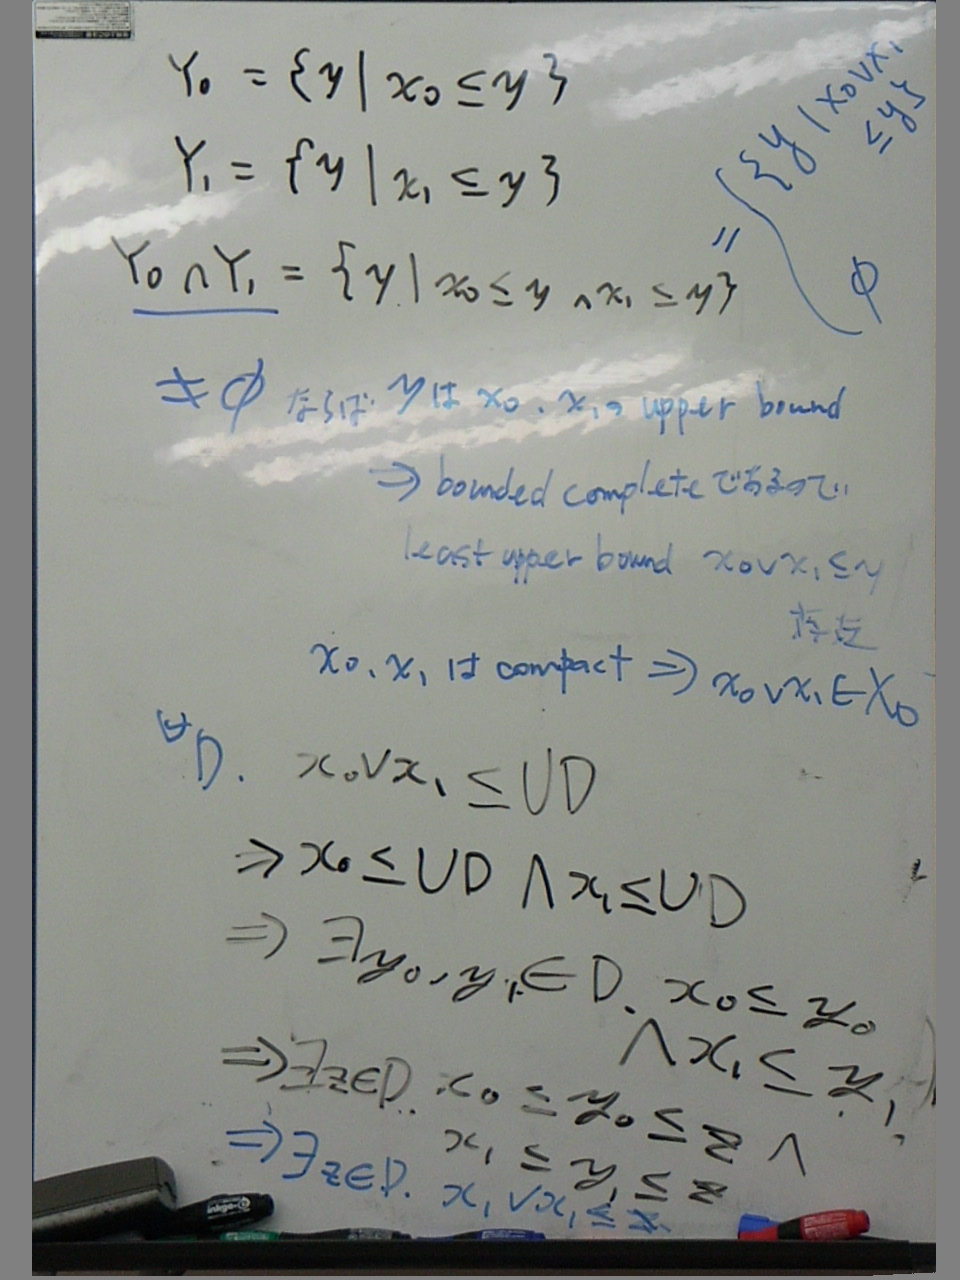 Y₀ = {y | x₀ ≤ y}
Y₁ = {y | x₁ ≤ y}
Y₀ ∩ Y₁ = {y | x₀ ≤ y ∧ x₁ ≤ y}
= { {y | x₀∨x₁ ≤ y}
φ
≠ φ ならば yは x₀、x₁の upper bound
⇒ bounded complete であるので
least upper bound x₀∨x₁ ≤ y
存在
x₀、x₁ は compact ⇒ x₀∨x₁ ∈ X₀
∀D. x₀∨x₁ ≤ ∪D
⇒ x₀ ≤ ∪D ∧ x₁ ≤ ∪D
⇒ ∃y₀, y₁ ∈ D. x₀ ≤ y₀
∧ x₁ ≤ y₁
⇒ ∃z∈D. x₀ ≤ y₀ ≤ z ∧
x₁ ≤ y₁ ≤ z
⇒ ∃z∈D. x₁∨x₁ ≤ z